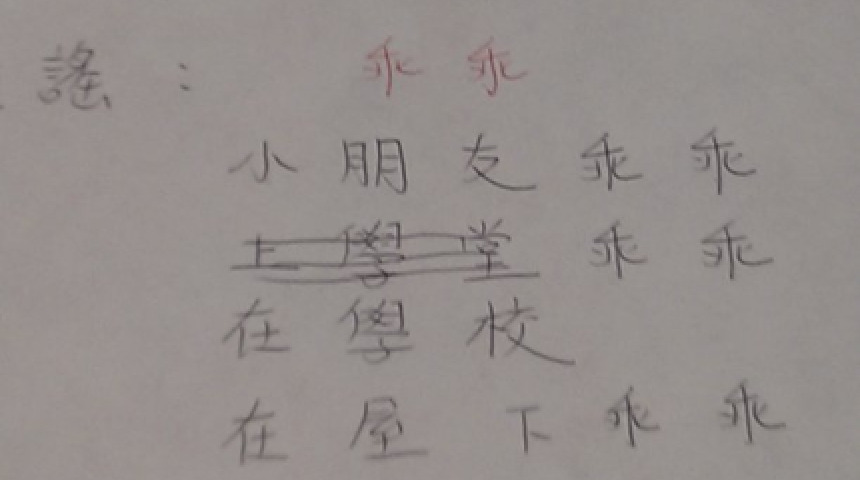 謠： 乖乖
小朋友乖乖
上學堂乖乖
在學校
在屋下乖乖